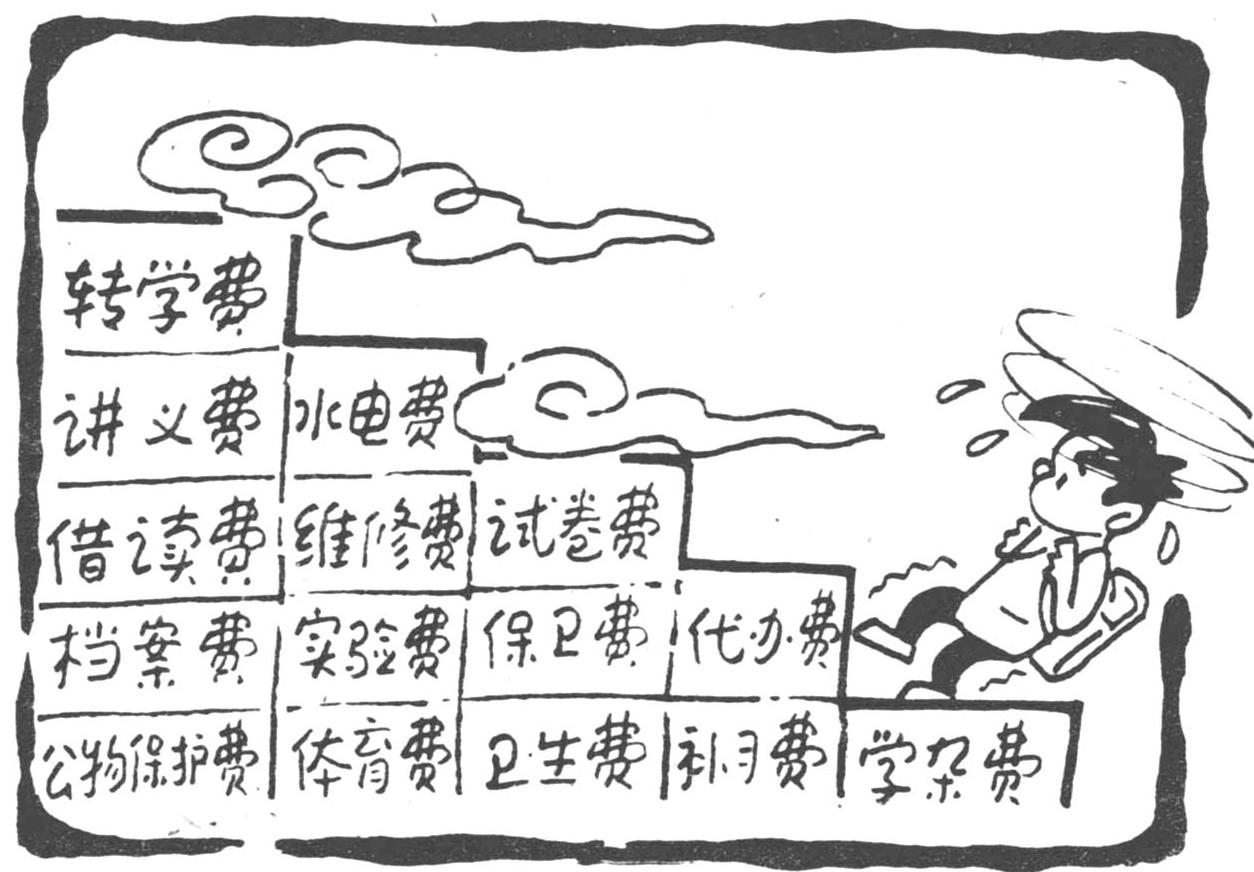 转学费
讲义费 水电费
借读费 维修费 试卷费
档案费 实验费 保卫费 代办费
公物保护费 体育费 卫生费 补习费 学杂费